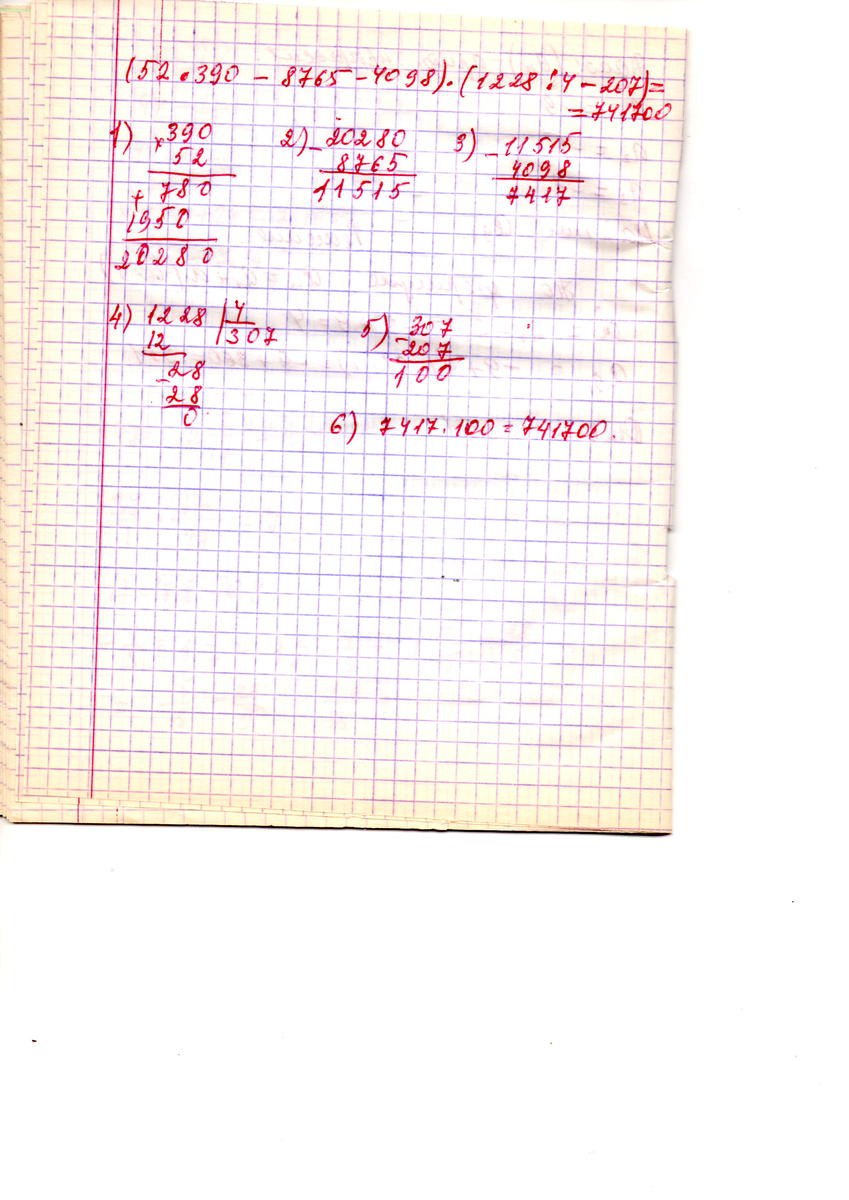 (52 • 390 - 8765 - 4098) • (1228 : 4 - 207) =
= 741700
1) × 390
52
+ 780
1950
20280
2) - 20280
8765
11515
3) - 11515
4098
7417
4) 1228 | 4
12 307
- 28
28
0
5) - 307
207
100
6) 7417 • 100 = 741700.